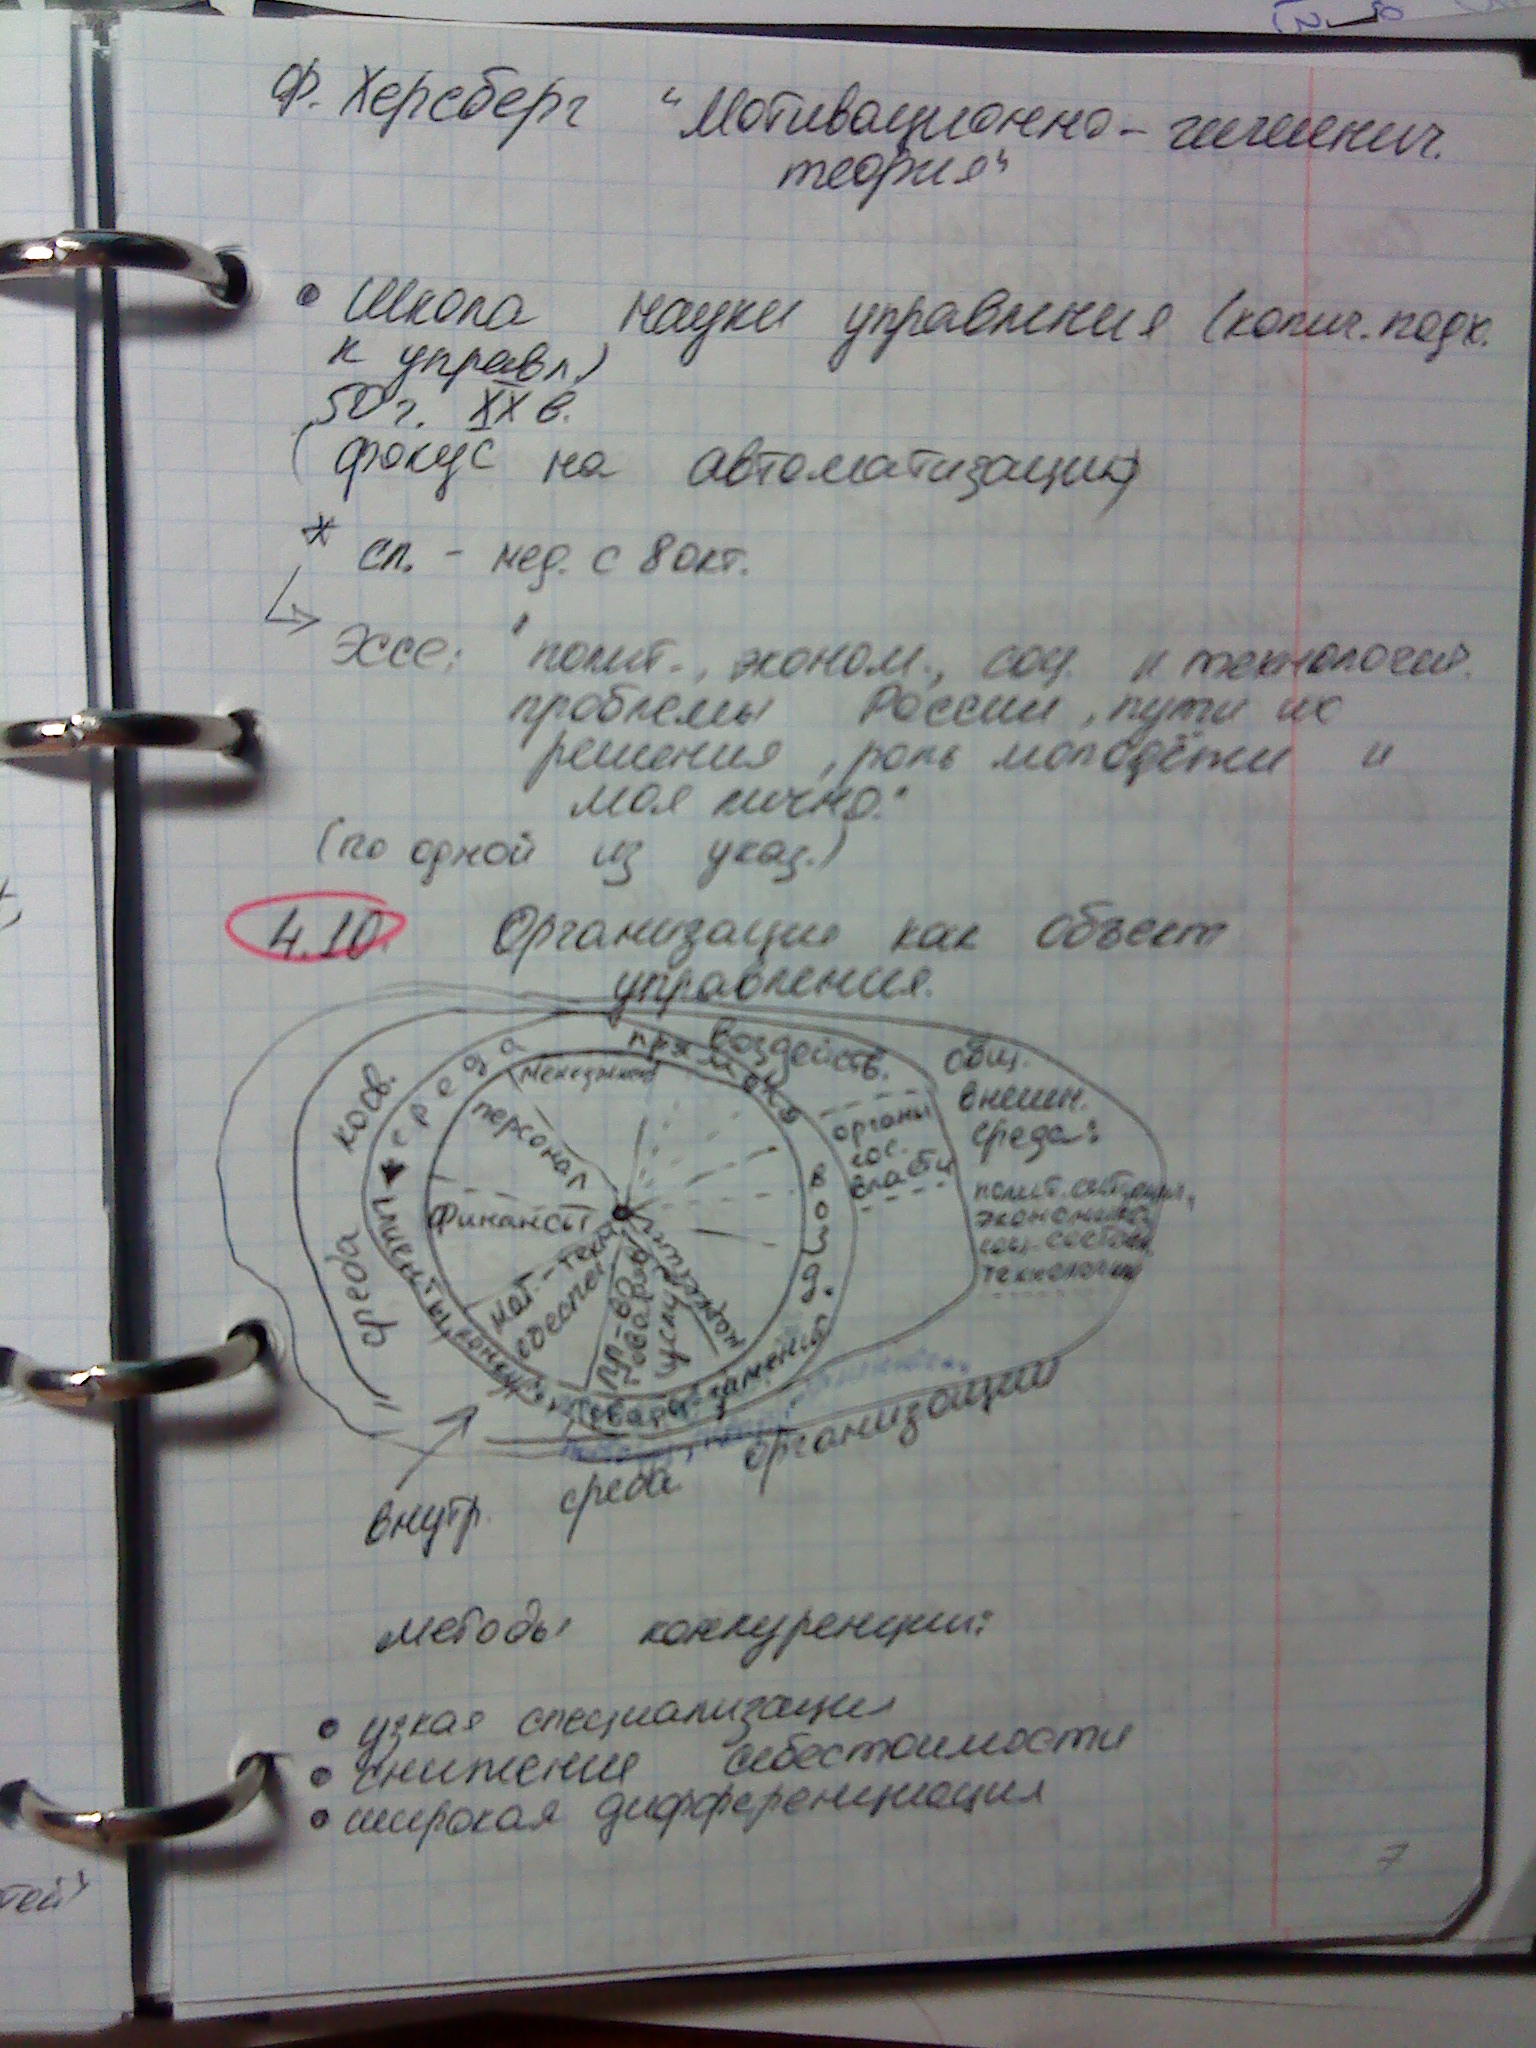 Ф. Херсберг "Мотивационно-гигиенич.
теория"
• Школа науки управления (колич. подх.
к управл.)
50 г. XX в.
(фокус на автоматизации)
* сп. - нед. с 8 окт.
Эссе: "полит., эконом., соц. и технологич.
проблемы России, пути их
решения, роль молодёжи и
моя лично."
(по одной из указ.)
4.10. Организация как объект
управления.
косв. среда
воздейств.
среда прямого возд.
менеджмент
персонал
финансы
мат-техн
обеспеч
пр-во
товаров
услуг
маркетинг
клиенты, конкуренты
товары-заменит
органы
гос.
власти
общ.
внешн.
среда:
полит. ситуация,
экономика,
соц. состоян,
технологии
внутр. среда организации
методы конкуренции:
• узкая специализация
• снижение себестоимости
• широкая дифференциация
7
тей)